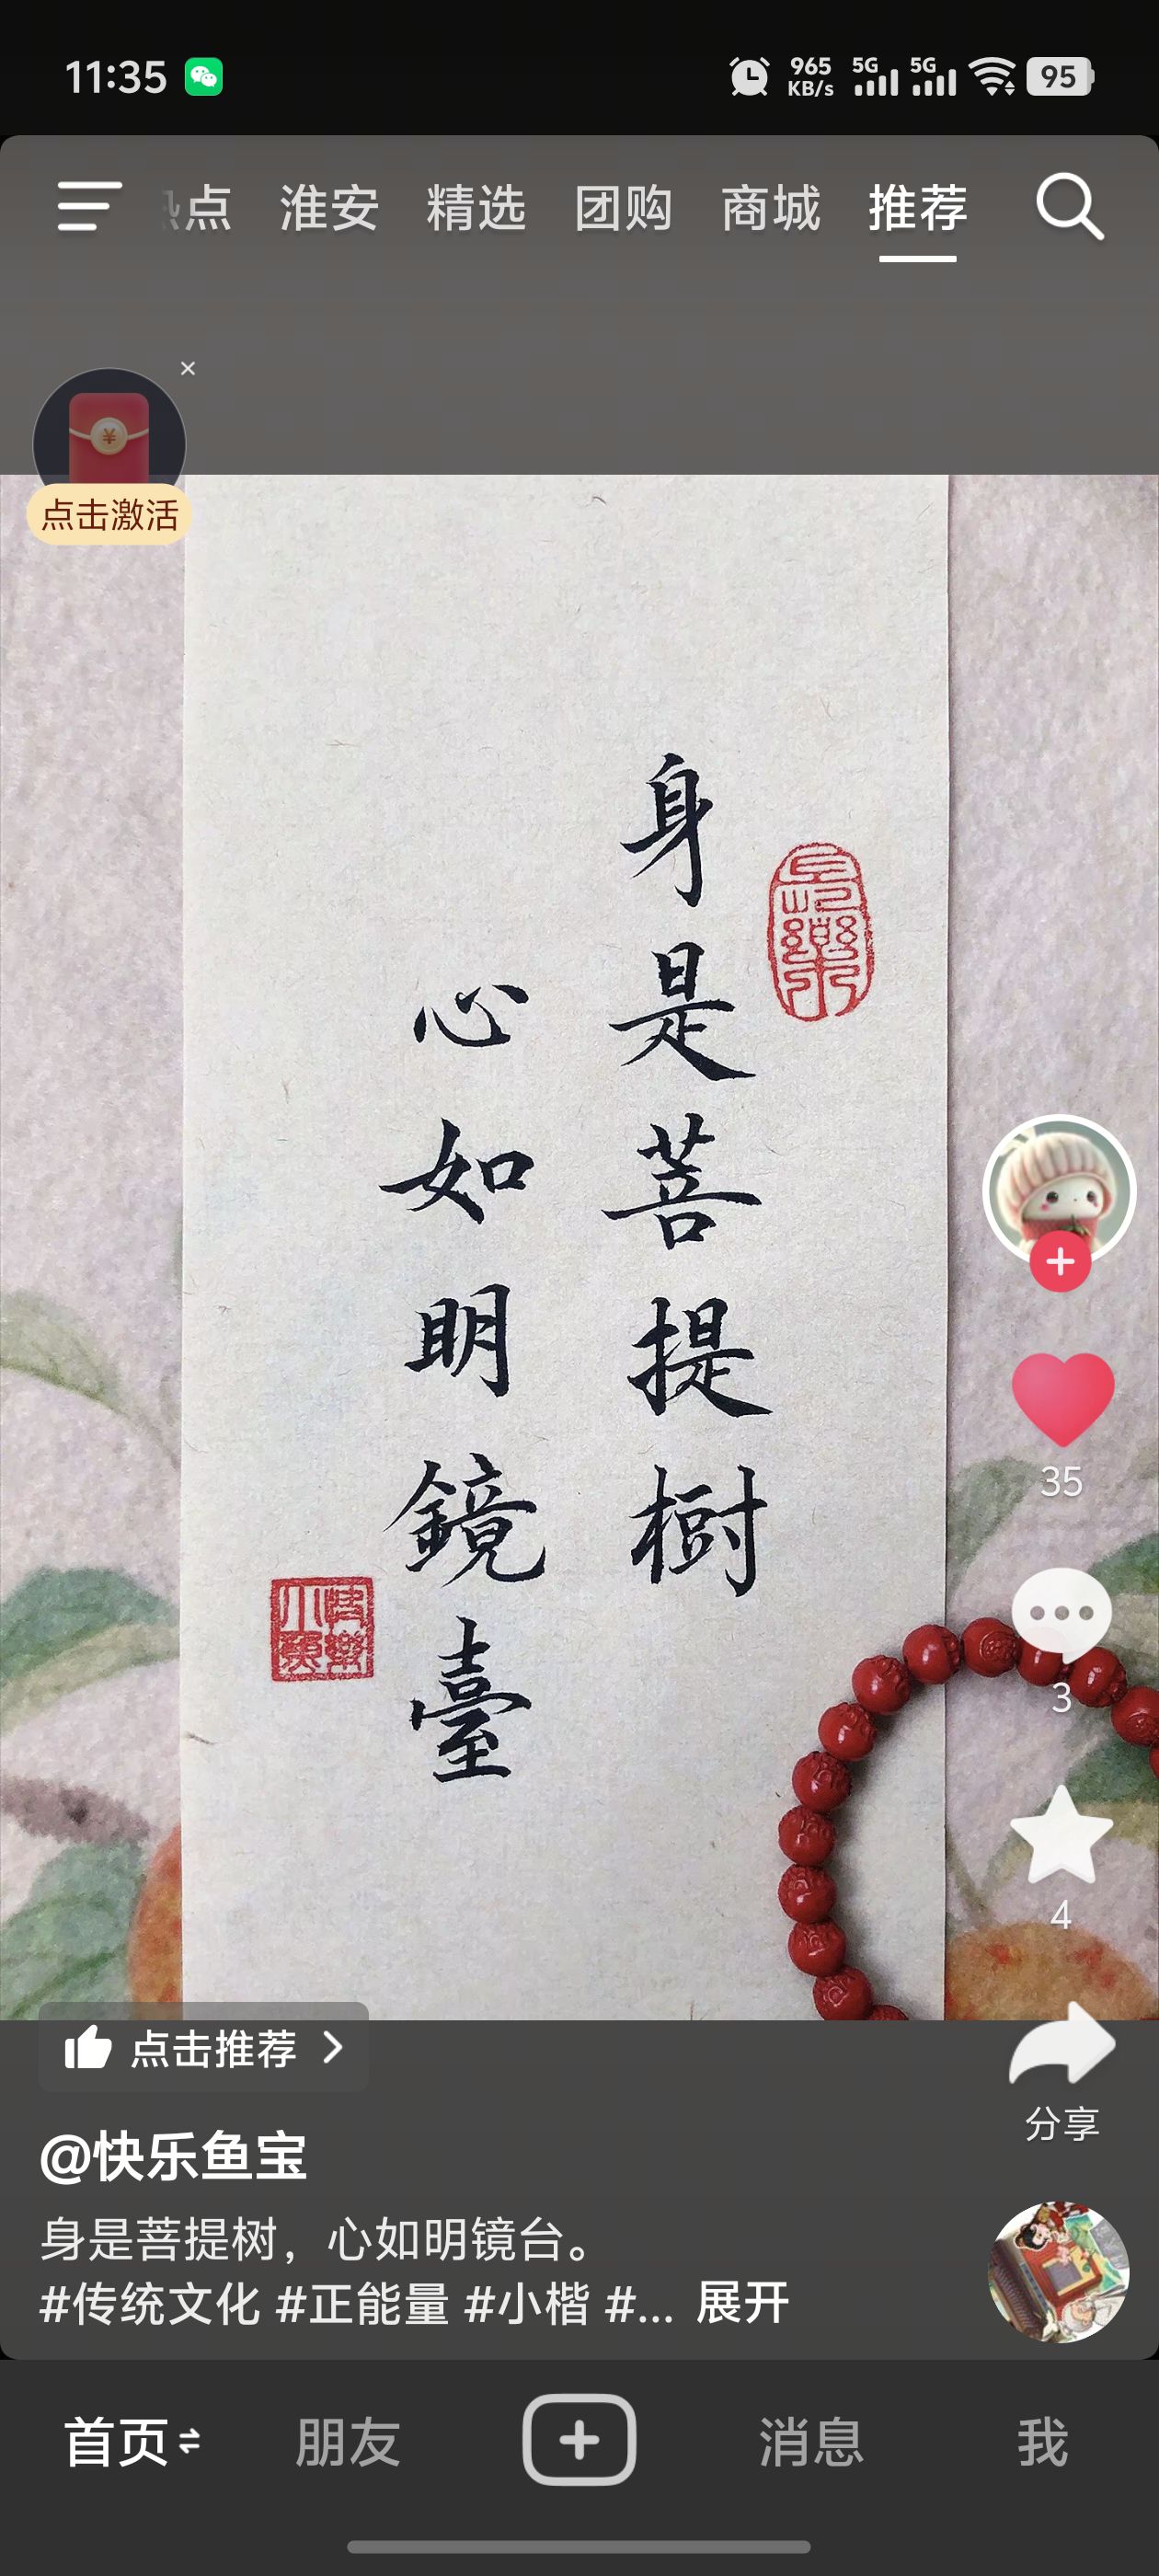 11:35
965 KB/s 5G 5G 95
点 淮安 精选 团购 商城 推荐
点击激活
身是菩提樹
心如明鏡臺
35
3
4
分享
点击推荐
@快乐鱼宝
身是菩提树，心如明镜台。
#传统文化 #正能量 #小楷 #... 展开
首页 朋友 消息 我